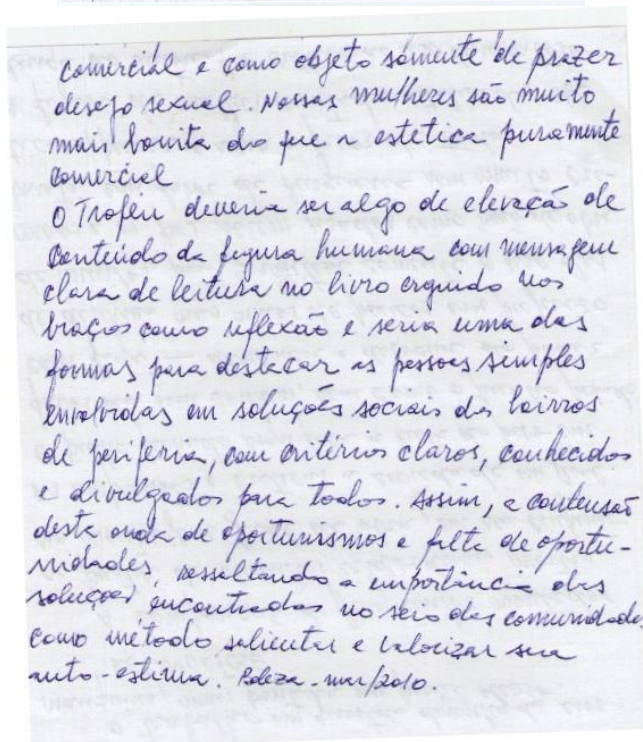 comercial e como objeto sòmente de prazer
desejo sexual. Nossas mulheres são muito
mais bonita do que a estetica puramente
comercial
O Trofeu deveria ser algo de elevação de
conteúdo da figura humana com mensagem
clara de leitura no livro erguido nos
braços como reflexão e seria uma das
formas para destacar as pessoas simples
envolvidas em soluções sociais dos bairros
de periferia, com critérios claros, conhecidos
e divulgados para todos. Assim, a contensão
desta onda de oportunismos e falta de oportu-
nidades, ressaltando a importância das
soluções encontradas no seio das comunidades
como método salientar e valorizar sua
auto-estima. mar/2010.